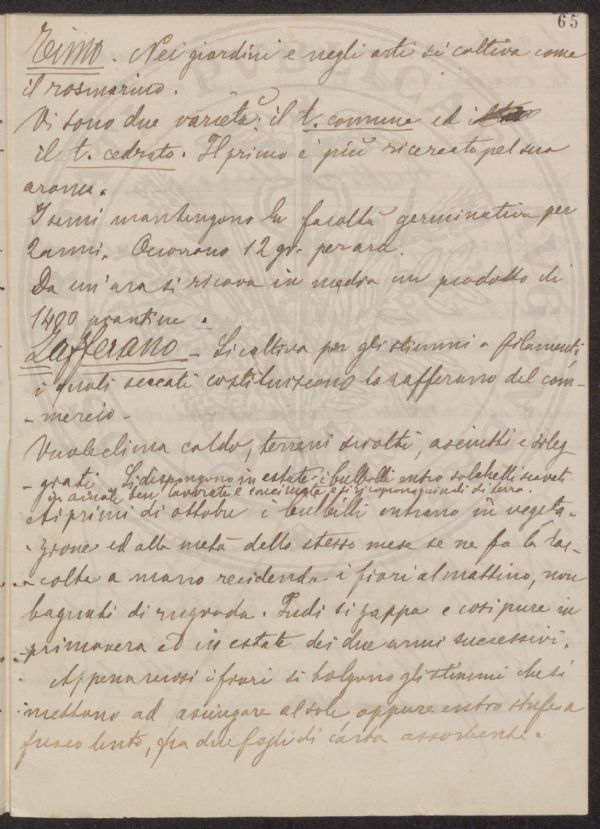 65
Timo. Nei giardini e negli orti si coltiva come
il rosmarino.
Vi sono due varietà: il t. comune ed
il t. cedrato. Il primo è più ricercato pel suo
aroma.
I semi mantengono la facoltà germinativa per
2 anni. Occorrono 12 gr. per ara.
Da un'ara si ricava in media un prodotto di
1400 piantine.
Zafferano - Si coltiva per gli stimmi o filamenti,
i quali seccati costituiscono lo zafferano del com-
- mercio -
Vuole clima caldo, terreni sciolti, asciutti e soleg-
- giati. Si dispongono in estate i bulbilli entro solchetti scavati
in aiuole ben lavorate e concimate e si ricoprono quindi di terra.
Ai primi di ottobre i bulbilli entrano in vegeta-
- zione ed alla metà dello stesso mese se ne fa la rac-
- colta a mano recidendo i fiori al mattino, non
bagnati di rugiada. Indi si zappa e così pure in
primavera ed in estate dei due anni successivi.
Appena recisi i fiori si tolgono gli stimmi che si
mettono ad asciugare al sole oppure entro stufe a
fuoco lento, fra due fogli di carta assorbente.